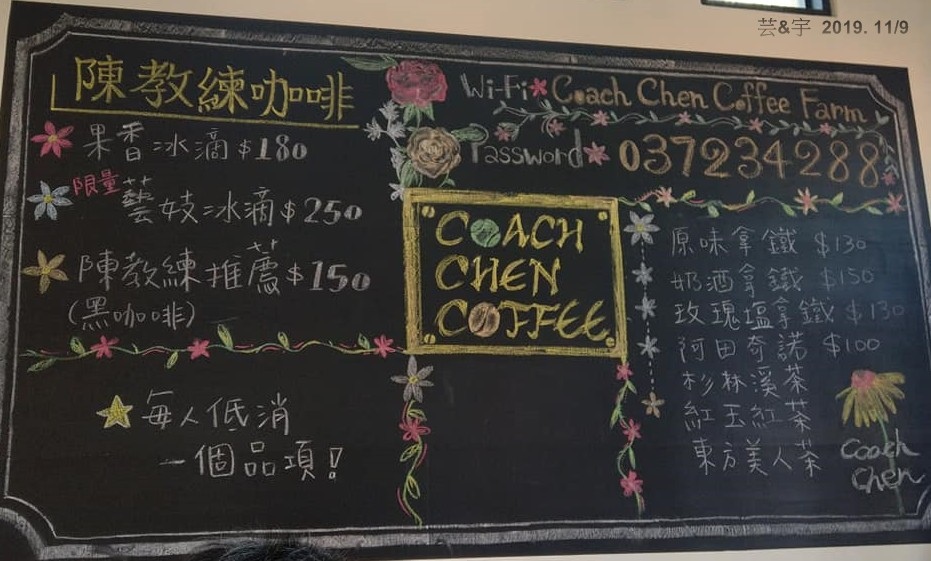 芸&宇 2019. 11/9
陳教練咖啡
果香冰滴 $180
限量
藝妓冰滴 $250
陳教練推薦 $150
(黑咖啡)
每人低消
一個品項!
Wi-Fi Coach Chen Coffee Farm
Password 037234288
COACH
CHEN
COFFEE
原味拿鐵 $130
奶酒拿鐵 $150
玫瑰塩拿鐵 $130
阿田奇諾 $100
杉林溪茶
紅玉紅茶
東方美人茶
Coach
Chen